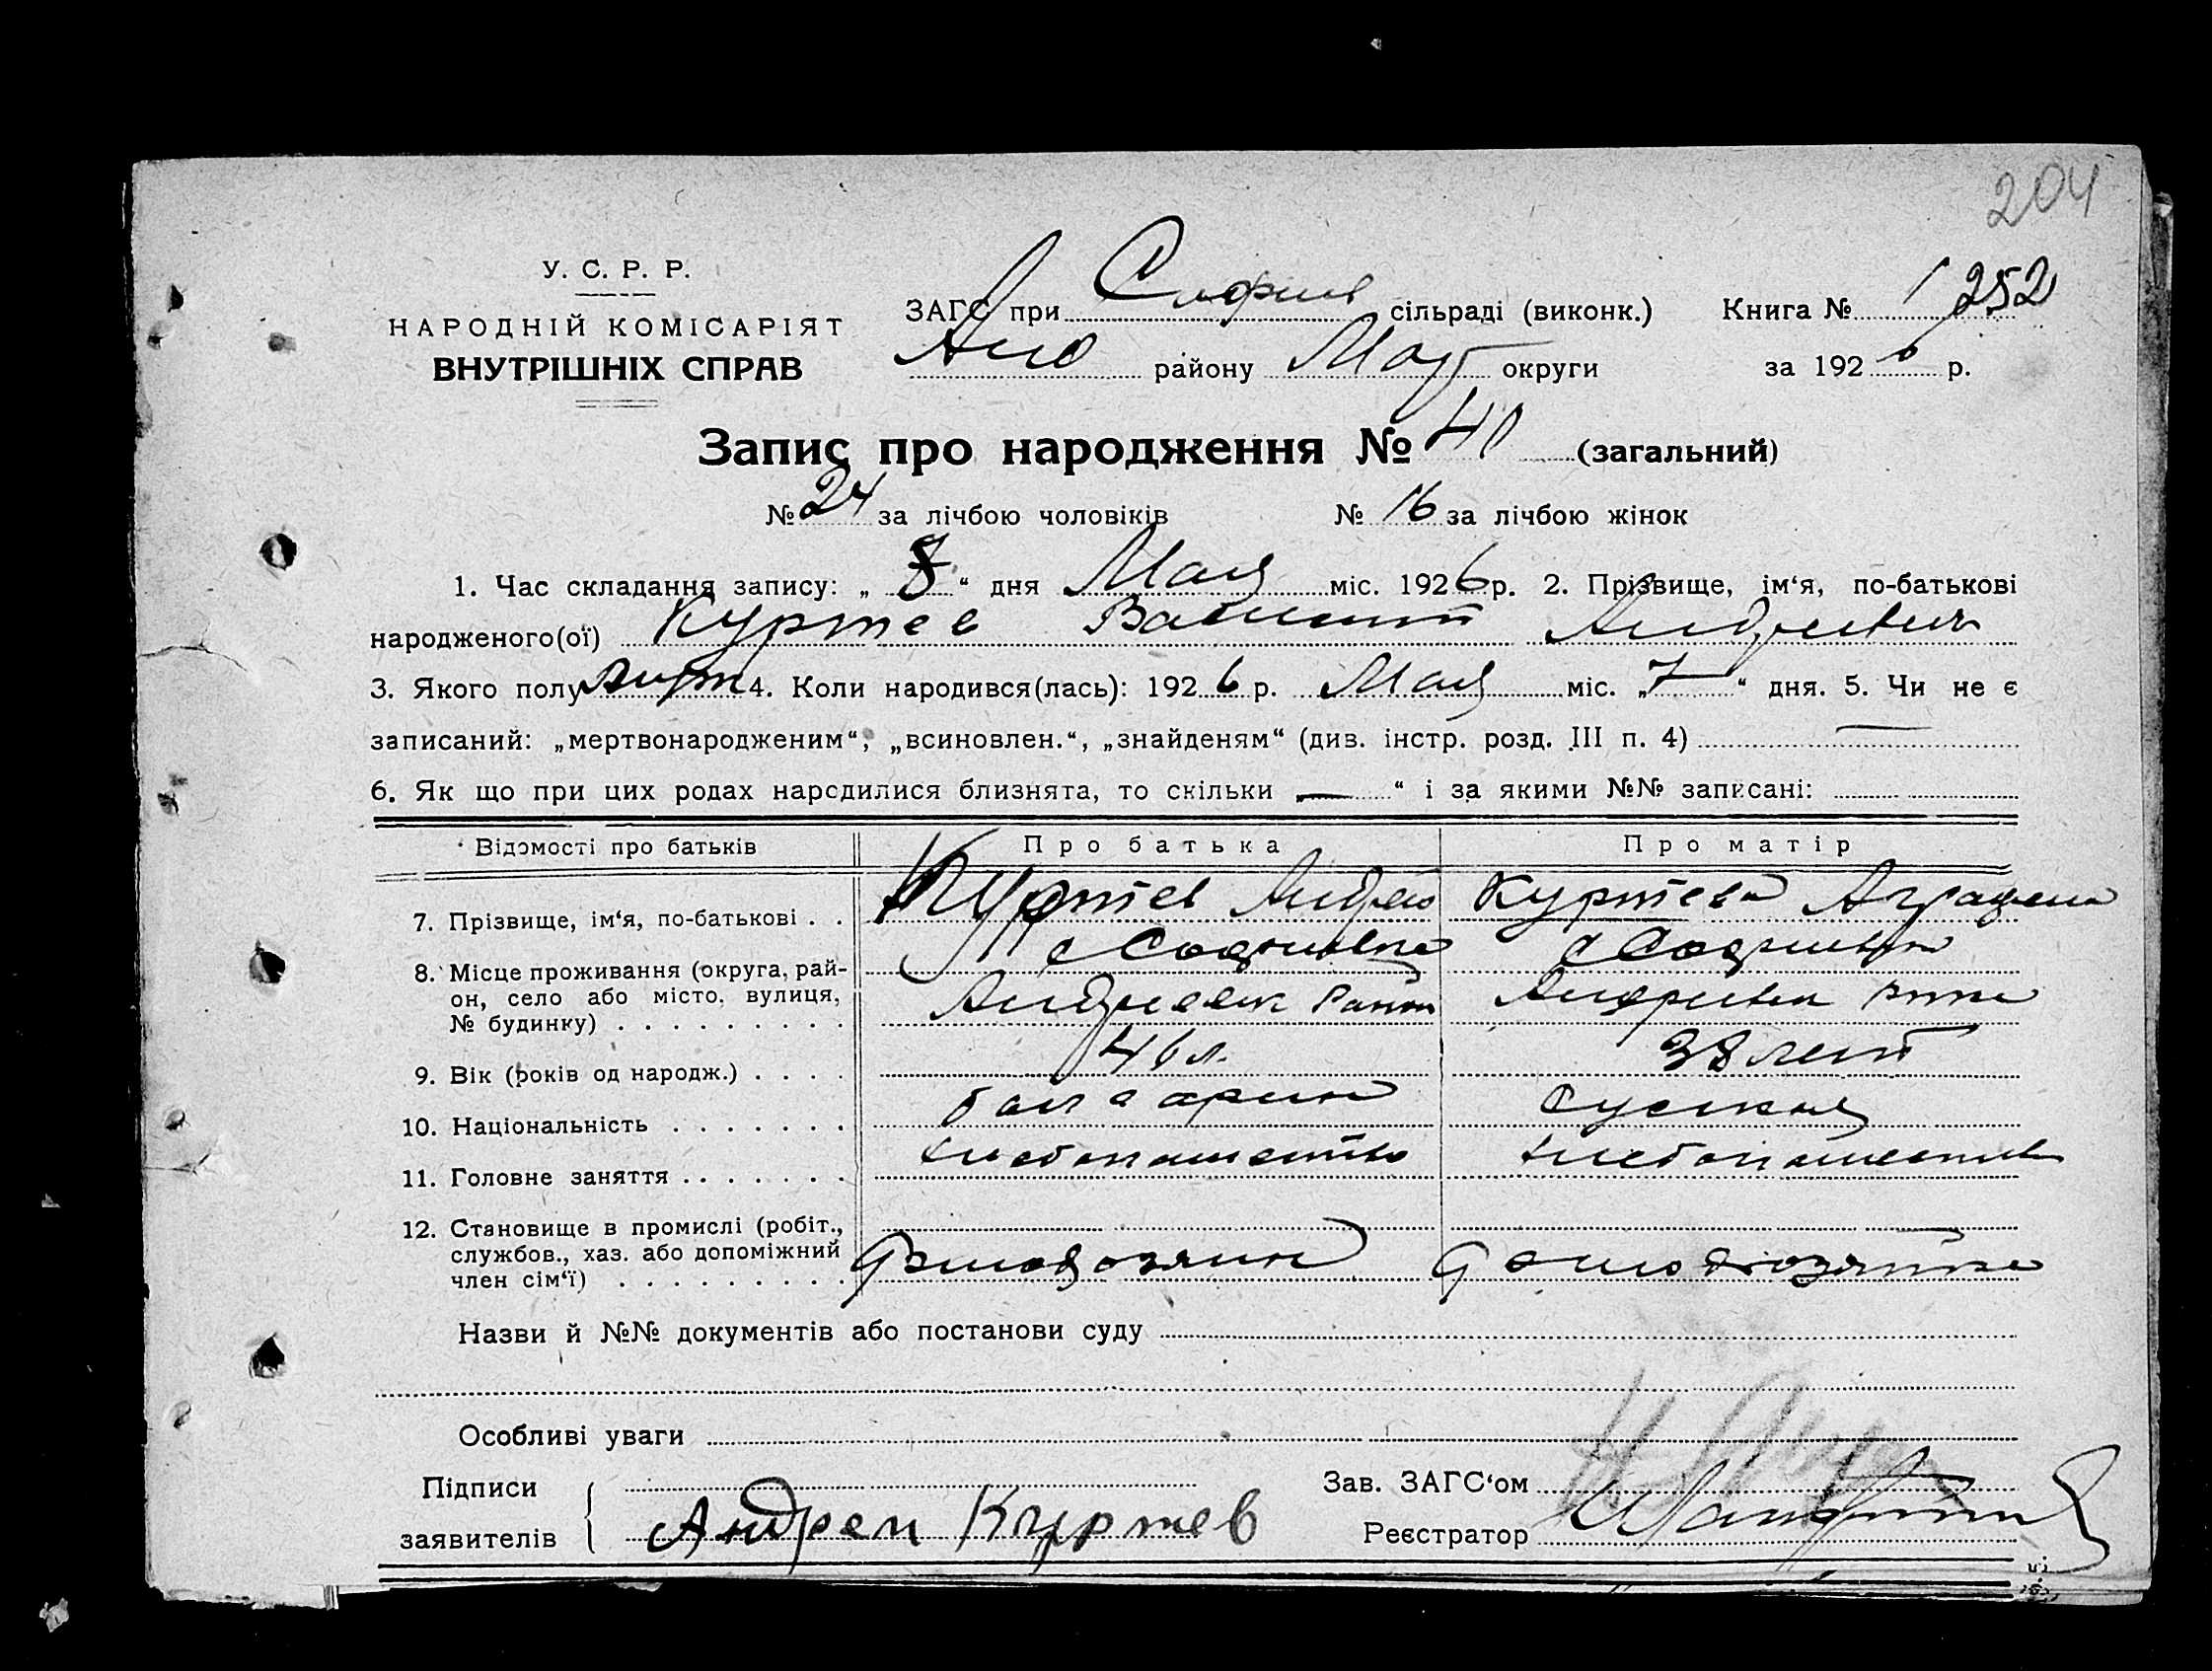 204
У. С. Р. Р.
НАРОДНІЙ КОМІСАРІЯТ
ВНУТРІШНІХ СПРАВ
ЗАГС при Софиев сільраді (виконк.)
Книга № 1 252
району Мар округи
за 1926 р.
Запис про народження № 40 (загальний)
№ 24 за лічбою чоловіків № 16 за лічбою жінок
1. Час складання запису: „ 8 “ дня Мая міс. 1926 р. 2. Прізвище, ім‘я, по-батькові
народженого(ої) Куртев Андреевич
3. Якого полу 4. Коли народився(лась): 1926 р. Мая міс. „ 7 “ дня. 5. Чи не є
записаний: „мертвонародженим“, „всиновлен.“, „знайденям“ (див. інстр. розд. III п. 4) —
6. Як що при цих родах народилися близнята, то скільки „ — “ і за якими №№ записані:
Відомості про батьків Про батька Про матір
7. Прізвище, ім‘я, по-батькові . . Куртев Андрей Куртева
8. Місце проживання (округа, рай-
он, село або місто, вулиця,
№ будинку) . . . . . . . . .
с Софиевка с Софиевка
Район
9. Вік (років од народж.) . . . . 46 л. 38 лет
10. Національність . . . . . . . болгарин руская
11. Головне заняття . . . . . . . хлебопашество хлебопашество
12. Становище в промислі (робіт.,
службов., хаз. або допоміжний
член сім‘ї) . . . . . . . . .
домохозяин домохозяйка
Назви й №№ документів або постанови суду
Особливі уваги
Підписи
заявителів
Андрей Куртев
Зав. ЗАГС‘ом
Реєстратор